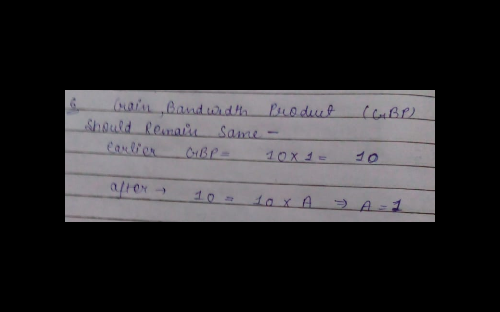 6. Gain, Bandwidth Product (GBP)
should remain same -
earlier GBP = 10 x 1 = 10
after → 10 = 10 x A ⇒ A = 1